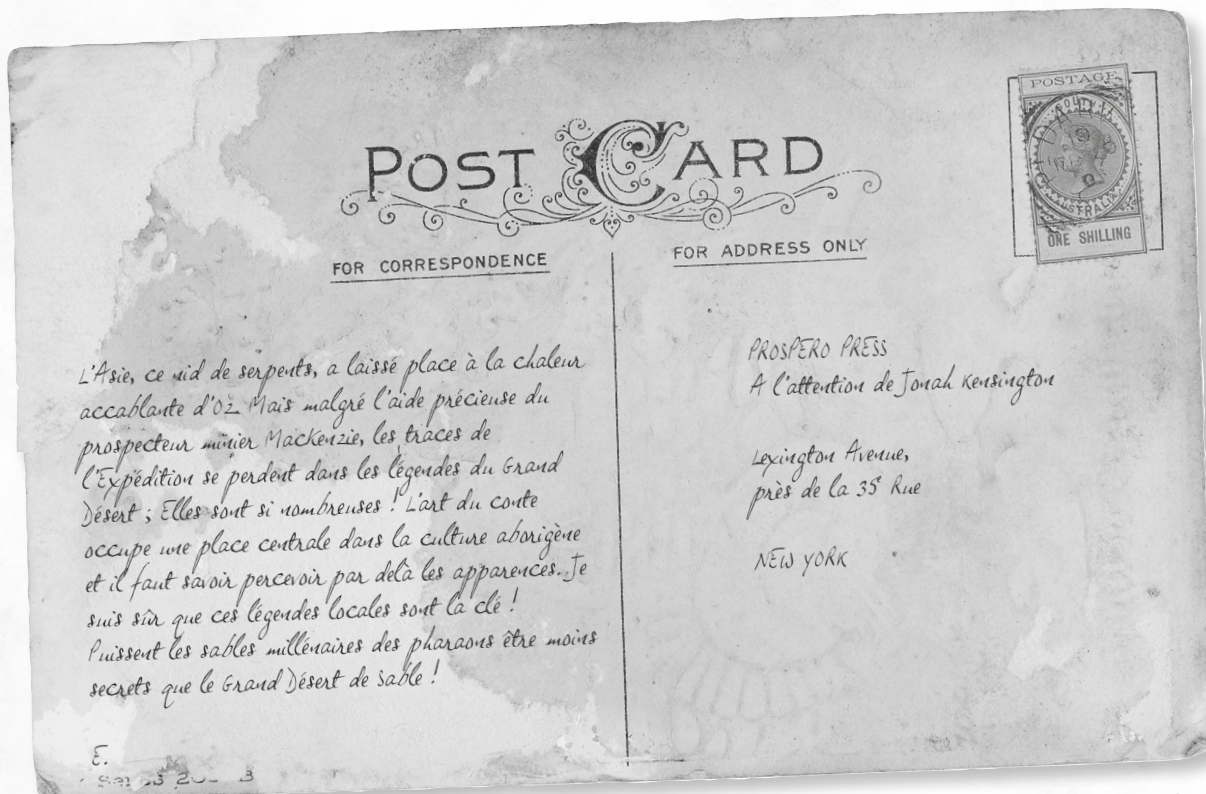 POST CARD
FOR CORRESPONDENCE
FOR ADDRESS ONLY
POSTAGE
SOUTH
AUSTRALIA
ONE SHILLING
L'Asie, ce nid de serpents, a laissé place à la chaleur
accablante d'Oz. Mais malgré l'aide précieuse du
prospecteur minier MacKenzie, les traces de
l'Expédition se perdent dans les légendes du Grand
Désert ; Elles sont si nombreuses ! L'art du conte
occupe une place centrale dans la culture aborigène
et il faut savoir percevoir par delà les apparences. Je
suis sûr que ces légendes locales sont la clé !
Puissent les sables millénaires des pharaons être moins
secrets que le Grand Désert de Sable !
E.
PROSPERO PRESS
A l'attention de Jonah Kensington
Lexington Avenue,
près de la 35e Rue
NEW YORK